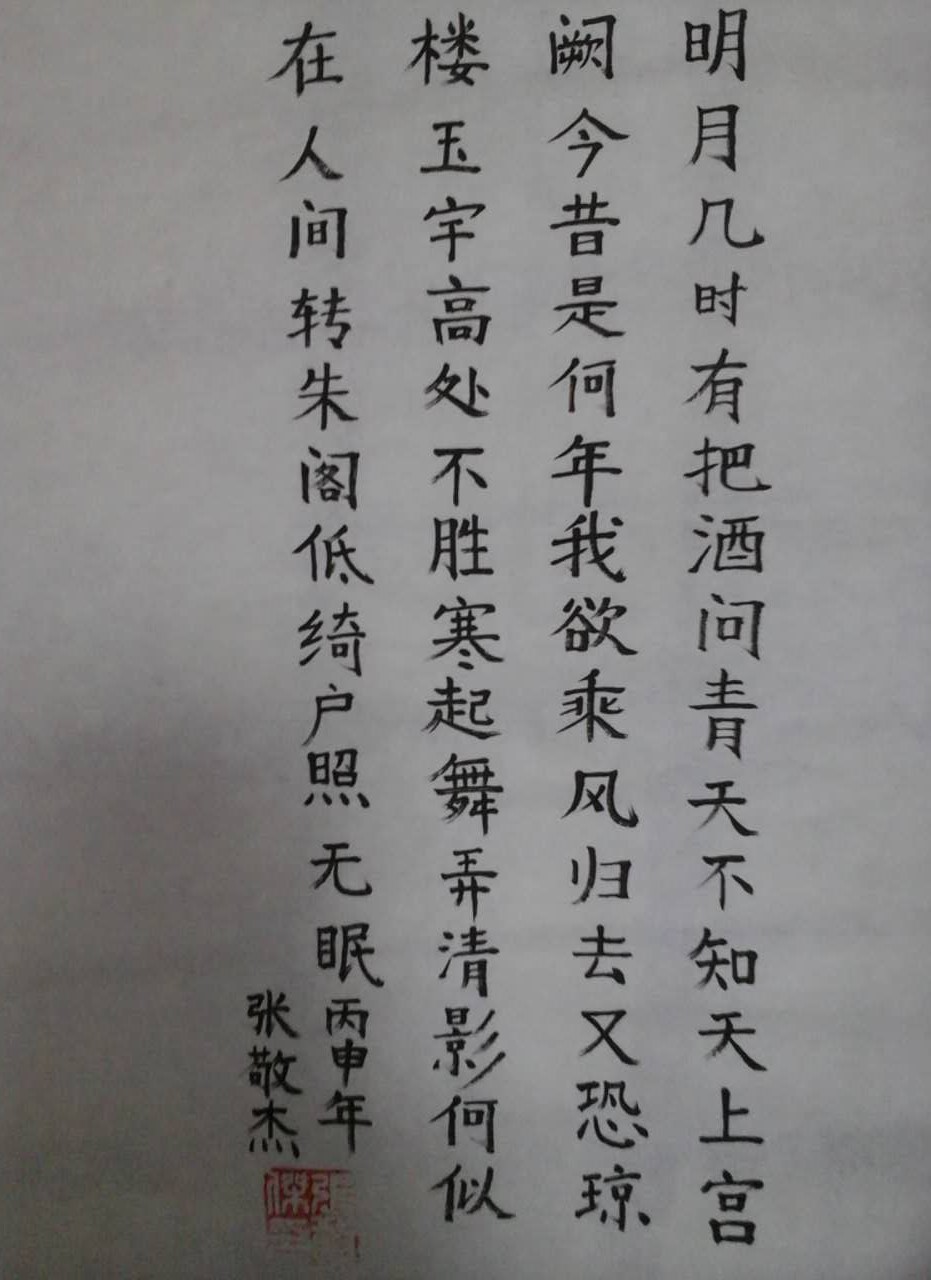 明月几时有把酒问青天不知天上宫
阙今昔是何年我欲乘风归去又恐琼
楼玉宇高处不胜寒起舞弄清影何似
在人间转朱阁低绮户照无眠
丙申年
张敬杰